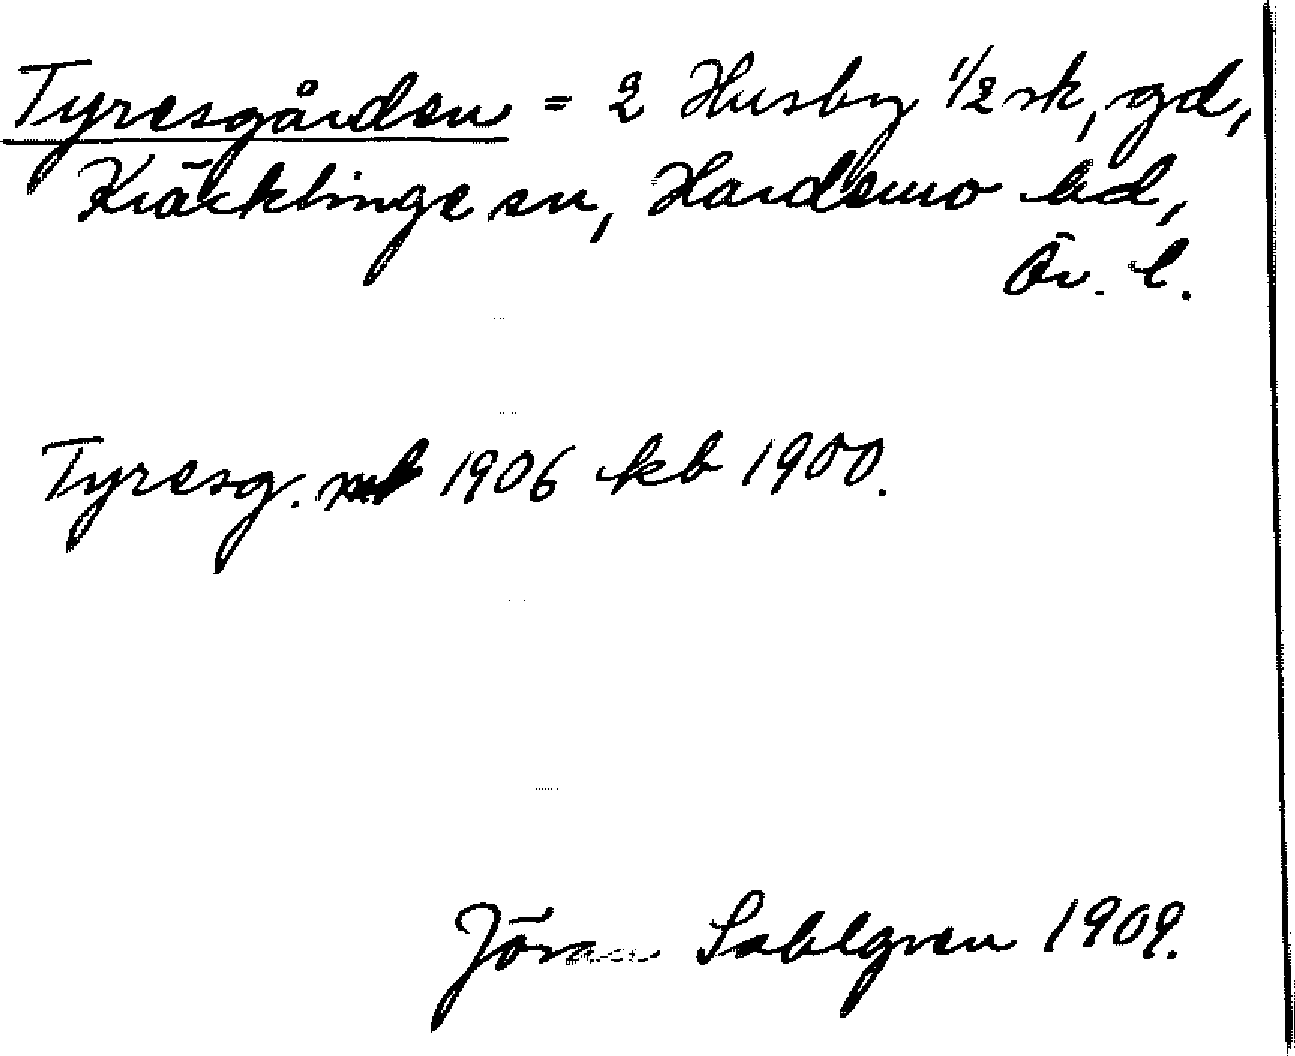 Tyresgården = 2 Husby 1/2 sk, gd,
Kräcklinge sn, Hardemo hd,
Ör. l.
Tyresg. 1906 kb 1900.
Jöran Sahlgren 1909.